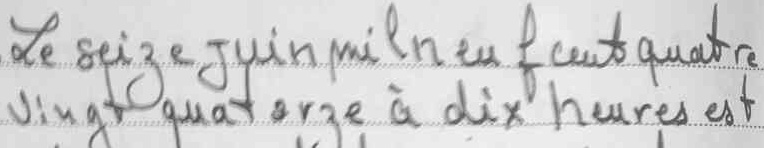 Le seize Juin mil neuf cent quatre
Vingt quatorze à dix heures est